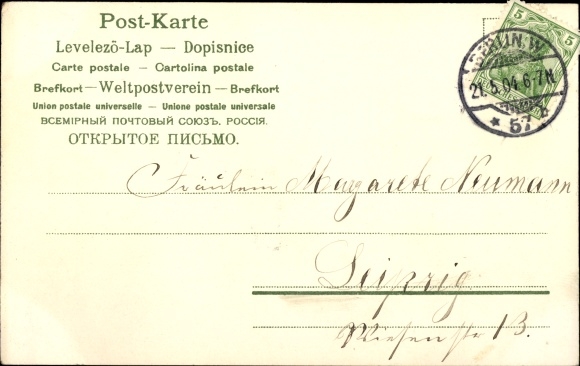 Post-Karte
Levelező-Lap — Dopisnice
Carte postale — Cartolina postale
Brefkort — Weltpostverein — Brefkort
Union postale universelle — Unione postale universale
ВСЕМІРНЫЙ ПОЧТОВЫЙ СОЮЗЪ. РОССІЯ.
ОТКРЫТОЕ ПИСЬМО.
5 5
BERLIN.W.
21.5.04.6-7N.
* 57 h
Fräulein Margarete Neumann
Leipzig
Wiesenstr 13.